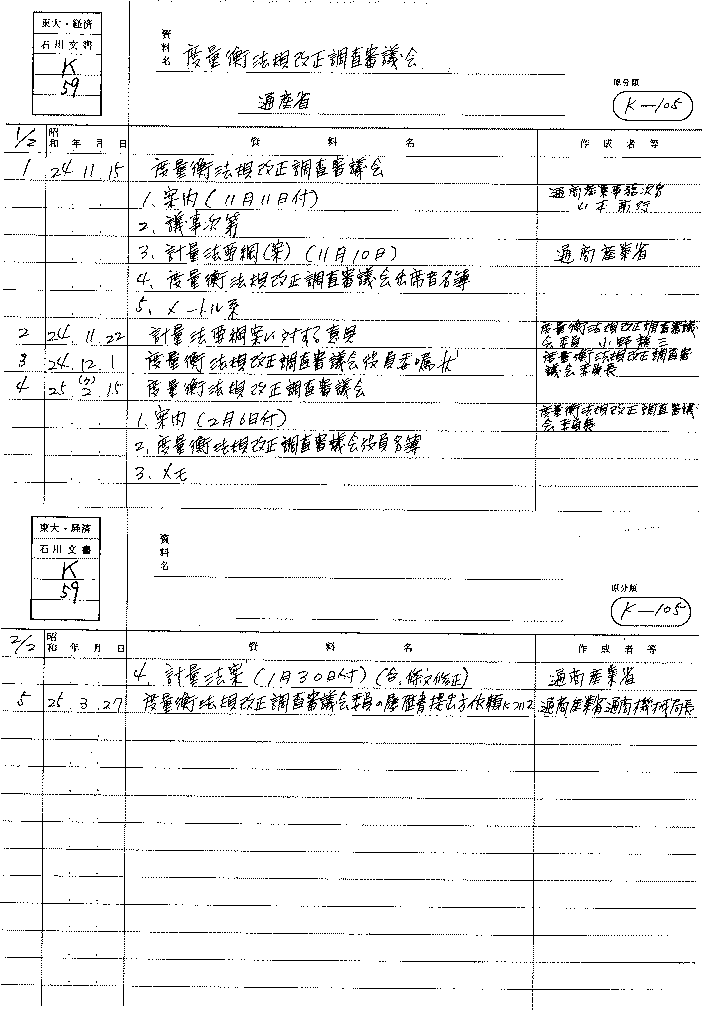 東大・経済
石川文書
K
59
資料名
度量衡法規改正調査審議会
通産省
原分類
K-105
1/2 昭和 年 月 日 資料名 作成者等
1 24 11 15 度量衡法規改正調査審議会
1. 案内(11月11日付) 通商産業事務次官
2. 議事次第
3. 計量法要綱(案)(11月10日) 通商産業省
4. 度量衡法規改正調査審議会出席者名簿
5. メートル系
2 24. 11. 22 計量法要綱案に対する意見 度量衡法規改正調査審議会委員 小野
3 24. 12. 1 度量衡法規改正調査審議会役員委嘱 度量衡法規改正調査審議会委員長
4 25 2 15 度量衡法規改正調査審議会
1. 案内(2月6日付) 度量衡法規改正調査審議会委員長
2. 度量衡法規改正調査審議会役員名簿
3. メモ
東大・経済
石川文書
K
59
資料名
原分類
K-105
2/2 昭和 年 月 日 資料名 作成者等
4. 計量法案(1月30日付)(含. 條文修正) 通商産業省
5 25. 3. 27 度量衡法規改正調査審議会委員の履歴書提出方依頼について 通商産業省通商機械局長